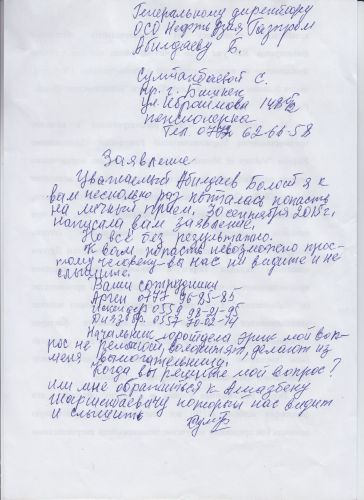 Генеральному директору
ОСО Нефть Азия Газпром
Абилдаеву Б.
Султанбаевой С.
пр. г. Бишкек
ул. Ибраимова 148
пенсионерка
Тел 62-66-58
Заявление
Уважаемый Абилдаев Болот я к
вам несколько раз пыталась попасть
на личный прием, 30 сентября 2015 г.
написала вам заявление,
Но все без результатно.
К вам попасть невозможно прос-
тому человеку - вы нас ни видите и не
слышите.
Ваши сотрудники
Арген 0777 96-85-85
Искендер 0559 98-01-95
0557
Начальник Эрик мой воп-
рос не решают, делают из
меня вымогательницу.
Когда вы решите мой вопрос?
или мне обратиться к Алмазбеку
Шаршеновичу который нас видит
и слышит